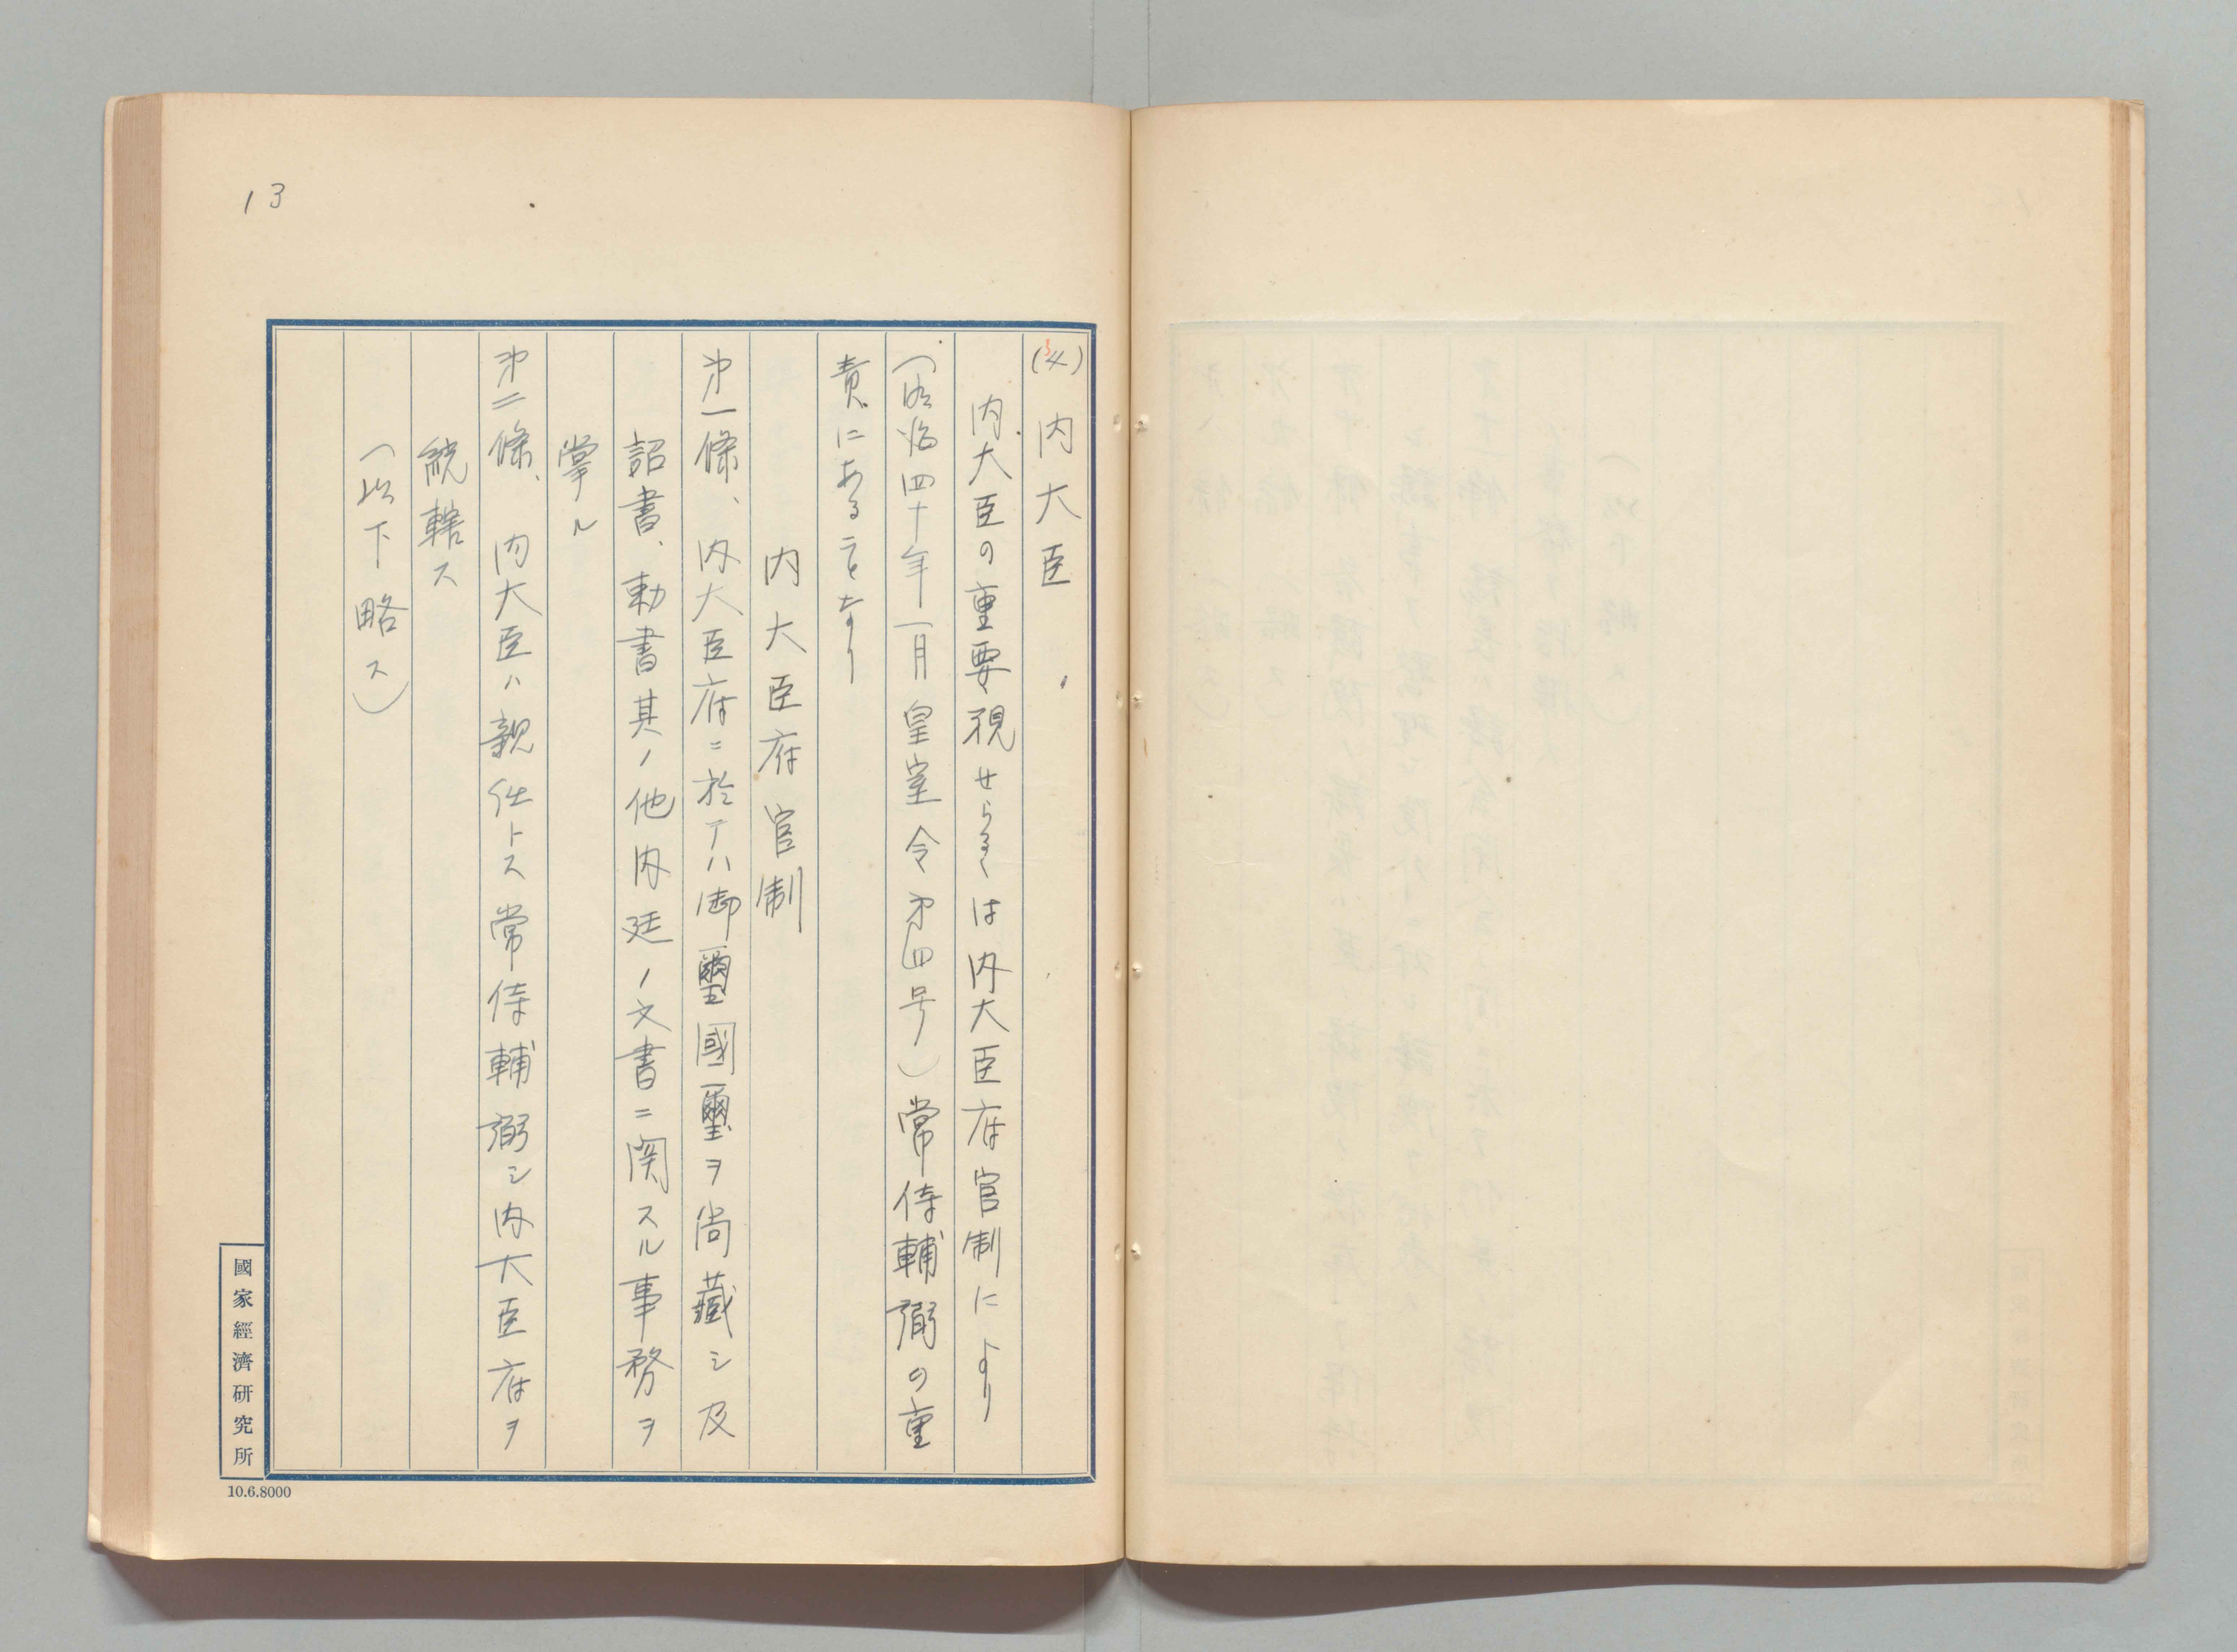 13
(4) 内大臣
内大臣の重要視せらるゝは内大臣府官制により
(明治四十年一月皇室令第四号)常侍輔弼の重
責にあることなり
内大臣府官制
第一條、内大臣府ニ於テハ御璽國璽ヲ尚藏シ及
詔書、勅書其ノ他内廷ノ文書ニ関スル事務ヲ
掌ル
第二條、内大臣ハ親任トス常侍輔弼シ内大臣府ヲ
統轄ス
(以下略ス)
國家經濟研究所
10.6.8000